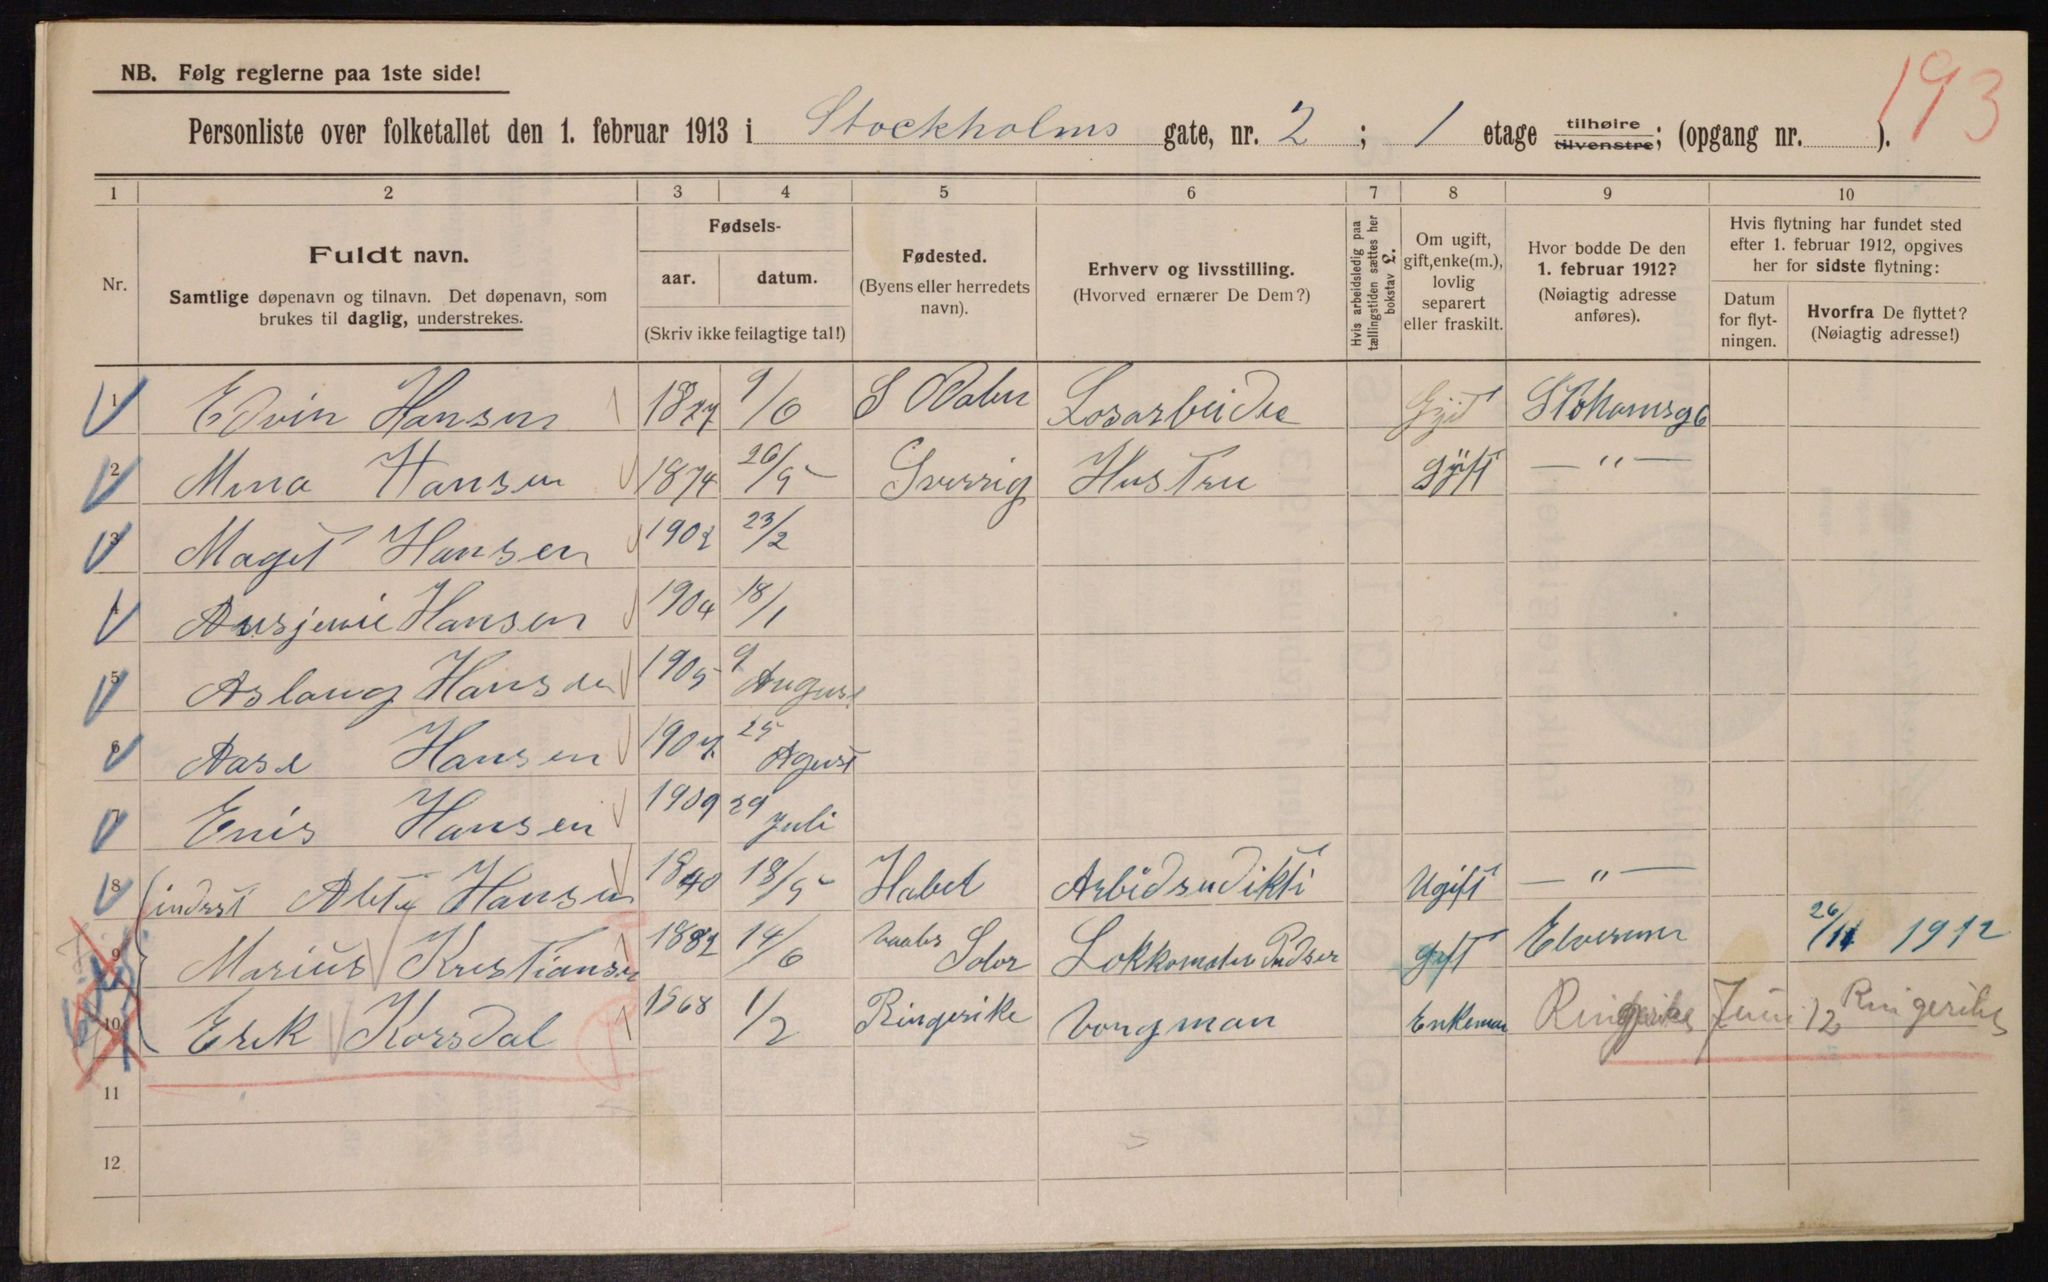 193
NB. Følg reglerne paa 1ste side!
Personliste over folketallet den 1. februar 1913 i Stockholms gate, nr. 2 ; 1 etage tilhøire tilvenstre; (opgang nr. ).
1 2 3 4 5 6 7 8 9 10
Nr.
Fuldt navn.
Samtlige døpenavn og tilnavn. Det døpenavn, som
brukes til daglig, understrekes.
Fødsels-
aar. datum.
(Skriv ikke feilagtige tal!)
Fødested.
(Byens eller herredets
navn).
Erhverv og livsstilling.
(Hvorved ernærer De Dem?)
Hvis arbeidsledig paa
tællingstiden sættes her
bokstav L.
Om ugift,
gift, enke(m.),
lovlig
separert
eller fraskilt.
Hvor bodde De den
1. februar 1912?
(Nøiagtig adresse
anføres).
Hvis flytning har fundet sted
efter 1. februar 1912, opgives
her for sidste flytning:
Datum
for flyt-
ningen.
Hvorfra De flyttet?
(Nøiagtig adresse!)
1 Edvin Hansen 9/6 Losarbeide
2 Mina Hansen 1874 26/5 Sverrig HusTru Gift — " —
3 Maget Hansen 1902 23/2
4 Hansen 1904 18/1
5 Aslaug Hansen 1905 9 August
6 Aase Hansen 1907 25 Agust
7 Enis Hansen 1909 29 Juli
8 Hansen 1840 18/5 Ugift — " —
9 Marius Kristiansen 1882 14/6 Solør Lokkomotiv Pudser gift Elverum 26/11 1912
10 Erik Korsdal 1868 1/2 Ringerike Vongman Enkeman Ringerike Juni 12 Ringerike
11
12